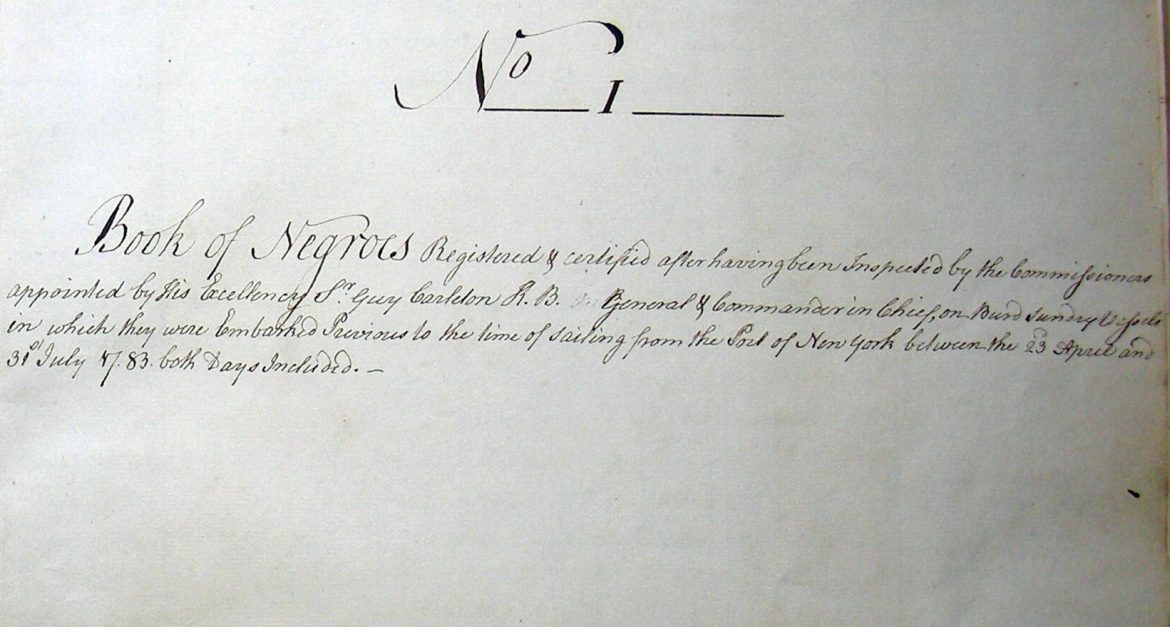 No 1
Book of Negroes Registered & certified after having been Inspected by the Commissioners
appointed by His Excellency Sr. Guy Carleton K. B. General & Commander in Chief, on Burd Sundry Vessels
in which they were Embarked Previous to the time of sailing from the Port of New York between the 23d April and
31st July 1783. both Days Included. —